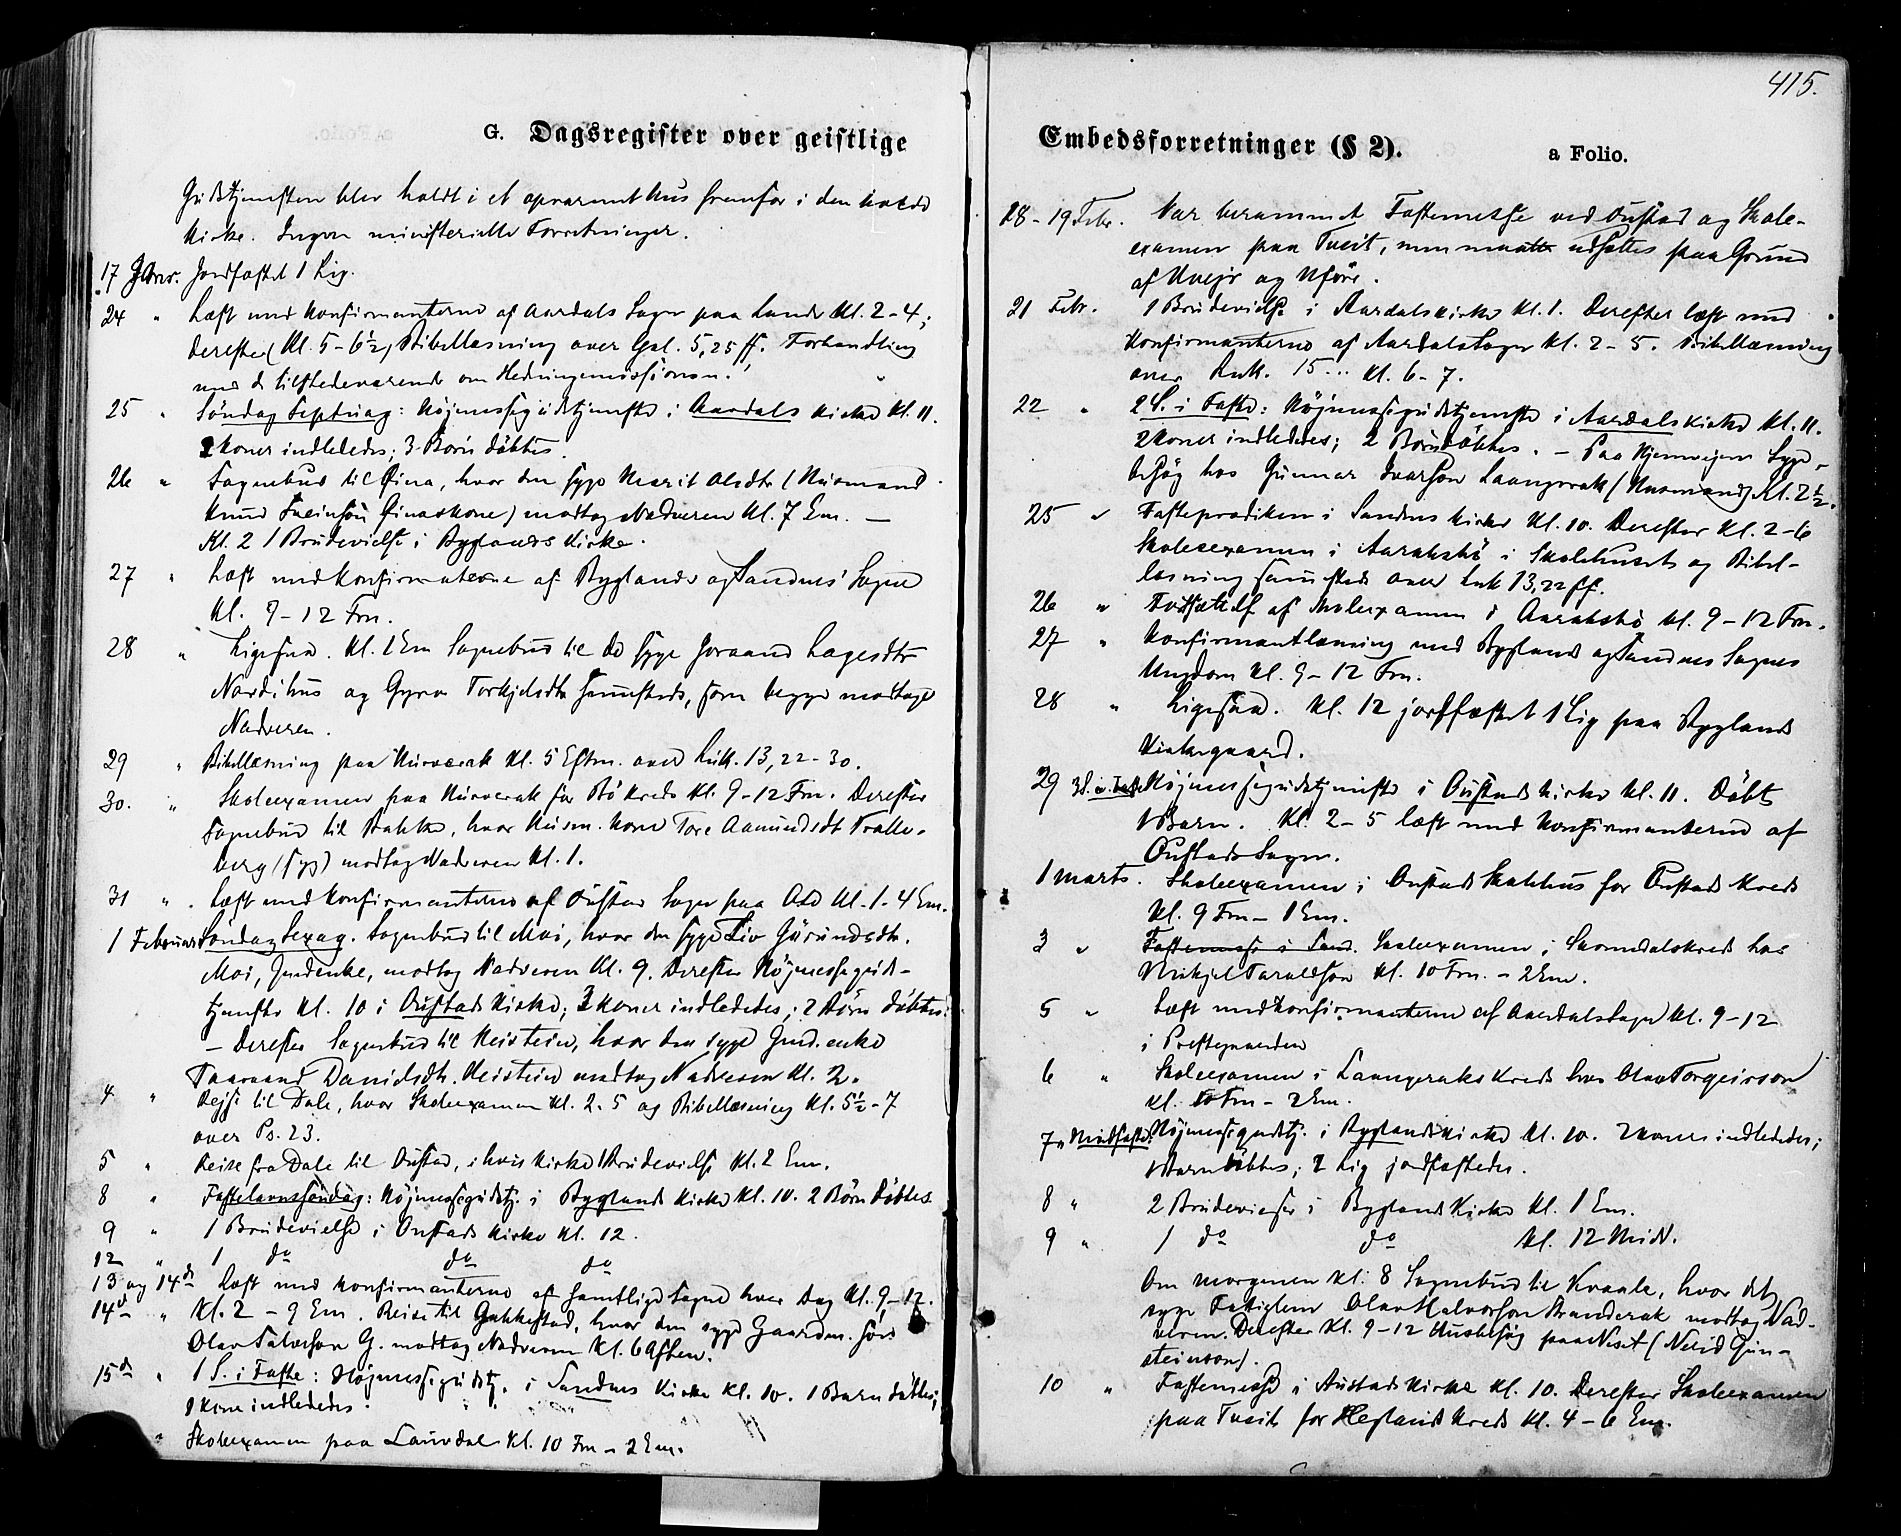 G. Dagsregister over geistlige
Gudstjenesten blev holdt i et opvarmet Hus fremfor i den kolde
Kirke. Ingen ministerielle Forretninger.
17 Jbnr. Jordfæstet 1 Lig.
24 " Læst med Konfirmanterne af Aardals Sogn paa Lunde Kl. 2-4;
derefter (Kl. 5-6½) Bibellæsning over Gal. 5,25 ff. Forhandling
med de tilstedeværende om Hedningemissionen.
25 " Söndag Septuag: Højmessegudstjeneste i Aardals Kirke Kl. 11.
2 Koner indlededes; 3 Börn döbtes.
26 " Sognebud til Öina, hvor den syge Marit Alsdtr (Husmand
Knud Sveinsön Öinas Kone) modtog Nadveren Kl. 7 Em. —
Kl. 2 1 Brudevielse i Byglands Kirke.
27 " Læst med Konfirmanterne af Byglands og Sandnes' Sogne
Kl. 9-12 Frm.
28 " Ligesaa. Kl. 1 Em Sognebud til de syge Joraand Lagesdtr
Nordihus og Gyro Torkjelsdtr sammesteds, som begge modtoge
Nadveren.
29 " Bibellæsning paa Kurverak Kl. 5 Eftm. over Luk. 13,22-30.
30. " Skoleexamen paa Kurverak for Bö Kreds Kl. 9-12 Frm. Derefter
Sognebud til Bakke, hvor Husm. Kone Tore Aamundsdt
berg (syg) modtog Nadveren Kl. 1.
31 " Læst med Konfirmanterne af Öustad Sogn paa Ose Kl. 1-4 Em.
1 Februar Söndag Sexag. Sognebud til Moi, hvor den syge Liv Gurundsdtr.
Moi, Gmdenke, modtog Nadveren Kl. 9. Derefter Højmessegud-
tjeneste Kl. 10 i Öustads Kirke; 3 Koner indlededes; 2 Börn döbtes.
— Derefter Sognebud til Heistein, hvor den syge Gmd.enke
Taaraand Danielsdtr. Heistein modtog Nadveren Kl. 2.
4 " Rejse til Dale, hvor Skoleexamen Kl. 2-5 og Bibellæsning Kl. 5½-7
over Ps. 23.
5 " Reise fra Dale til Öustad, i hvis Kirke 1 Brudevielse Kl. 2 Em.
8 " Fastelavnssöndag: Højmessegudstj. i Byglands Kirke Kl. 10. 2 Börn döbtes
9 " 1 Brudevielse i Öustads Kirke Kl. 12.
12 " 1 do do do
13 og 14de Læst med Konfirmanterne af samtlige Sogne hver Dag Kl. 9-12.
14de " Kl. 2 - 9 Em. Reise til Gakkestad, hvor den syge Gaardm. sön
Olav Salveson G. modtog Nadveren Kl. 6 Aften.
15de " 1 S. i Faste: Højmessegudstj. i Sandnes Kirke Kl. 10. 1 Barn döbtes;
1 Kone indlededes.
" Skoleexamen paa Lauvdal Kl. 10 Fm - 2 Em.
415.
Embedsforretninger (§ 2). a Folio.
18-19 Febr. Var berammet Fastemesse ved Öustad og Skole-
examen paa Tveit, men maatte udsættes paa Grund
af Uvejr og Uföre.
21 Febr. 1 Brudevielse i Aardals Kirke Kl. 1. Derefter læst med
Konfirmanterne af Aardals Sogn Kl. 2-5. Bibellæsning
over Luk. 15... Kl. 6-7.
22 " 2 S. i Faste: Höjmessegudstjeneste i Aardals Kirke Kl. 11.
2 Koner indlededes; 2 Börn döbtes. — Paa Hjemvejen Syge-
besög hos Gunnar Ivarson Laangerak (Husmand) Kl. 2½.
25 " Fasteprædiken i Sandnes Kirke Kl. 10. Derefter Kl. 2-6
Skoleexamen i Aarakstö i Skolehuset og Bibel-
læsning sammesteds over Luk 13,22 ff.
26 " Fortsættelse af Skoleexamen i Aarakstö Kl. 9-12 Frm.
27 " Konfirmantlæsning med Byglands og Sandnes Sognes
Ungdom Kl. 9-12 Frm.
28 " Ligesaa. Kl. 12 jordfæstet 1 Lig paa Byglands
Kirkegaard.
29 3 S. i Faste Højmessegudstjeneste i Öustads Kirke Kl. 11. Döbt
1 Barn. Kl. 2-5 læst med Konfirmanterne af
Öustads Sogn.
1 Marts. Skoleexamen i Öustad Skolehus for Öustads Kreds
Kl. 9 Frm - 1 Em.
3 " Fastemesse i Sand. Skoleexamen i Skomdals Kreds hos
Mikjel Taraldson Kl. 10 Frm. - 2 Em.
5 " Læst med Konfirmanterne af Aardals Sogn Kl. 9-12
i Prestegaarden
6 " Skoleexamen i Laangeraks Kreds hos Olav Torgeirson
Kl. 10 Frm - 2 Em.
7 " Midfaste. Højmessegudstj. i Byglands Kirke Kl. 10. 2 Koner indlededes;
1 Barn döbtes; 2 Lig jordfæstedes.
8 " 2 Brudevielser i Byglands Kirke Kl. 1 Em.
9 " 1 do do Kl. 12 Midd.
Om Morgenen Kl. 8 Sognebud til Kvaale, hvor det
syge Fattiglem Olav Halvorson Tranderak modtog Nad-
veren. Derefter Kl. 9-12 Husbesög paa Neset (Nerid Gun-
steinson).
10 " Fastemesse i Austads Kirke Kl. 10. Derefter Skoleexamen
paa Tveit for Heglands Kreds Kl. 4-6 Em.